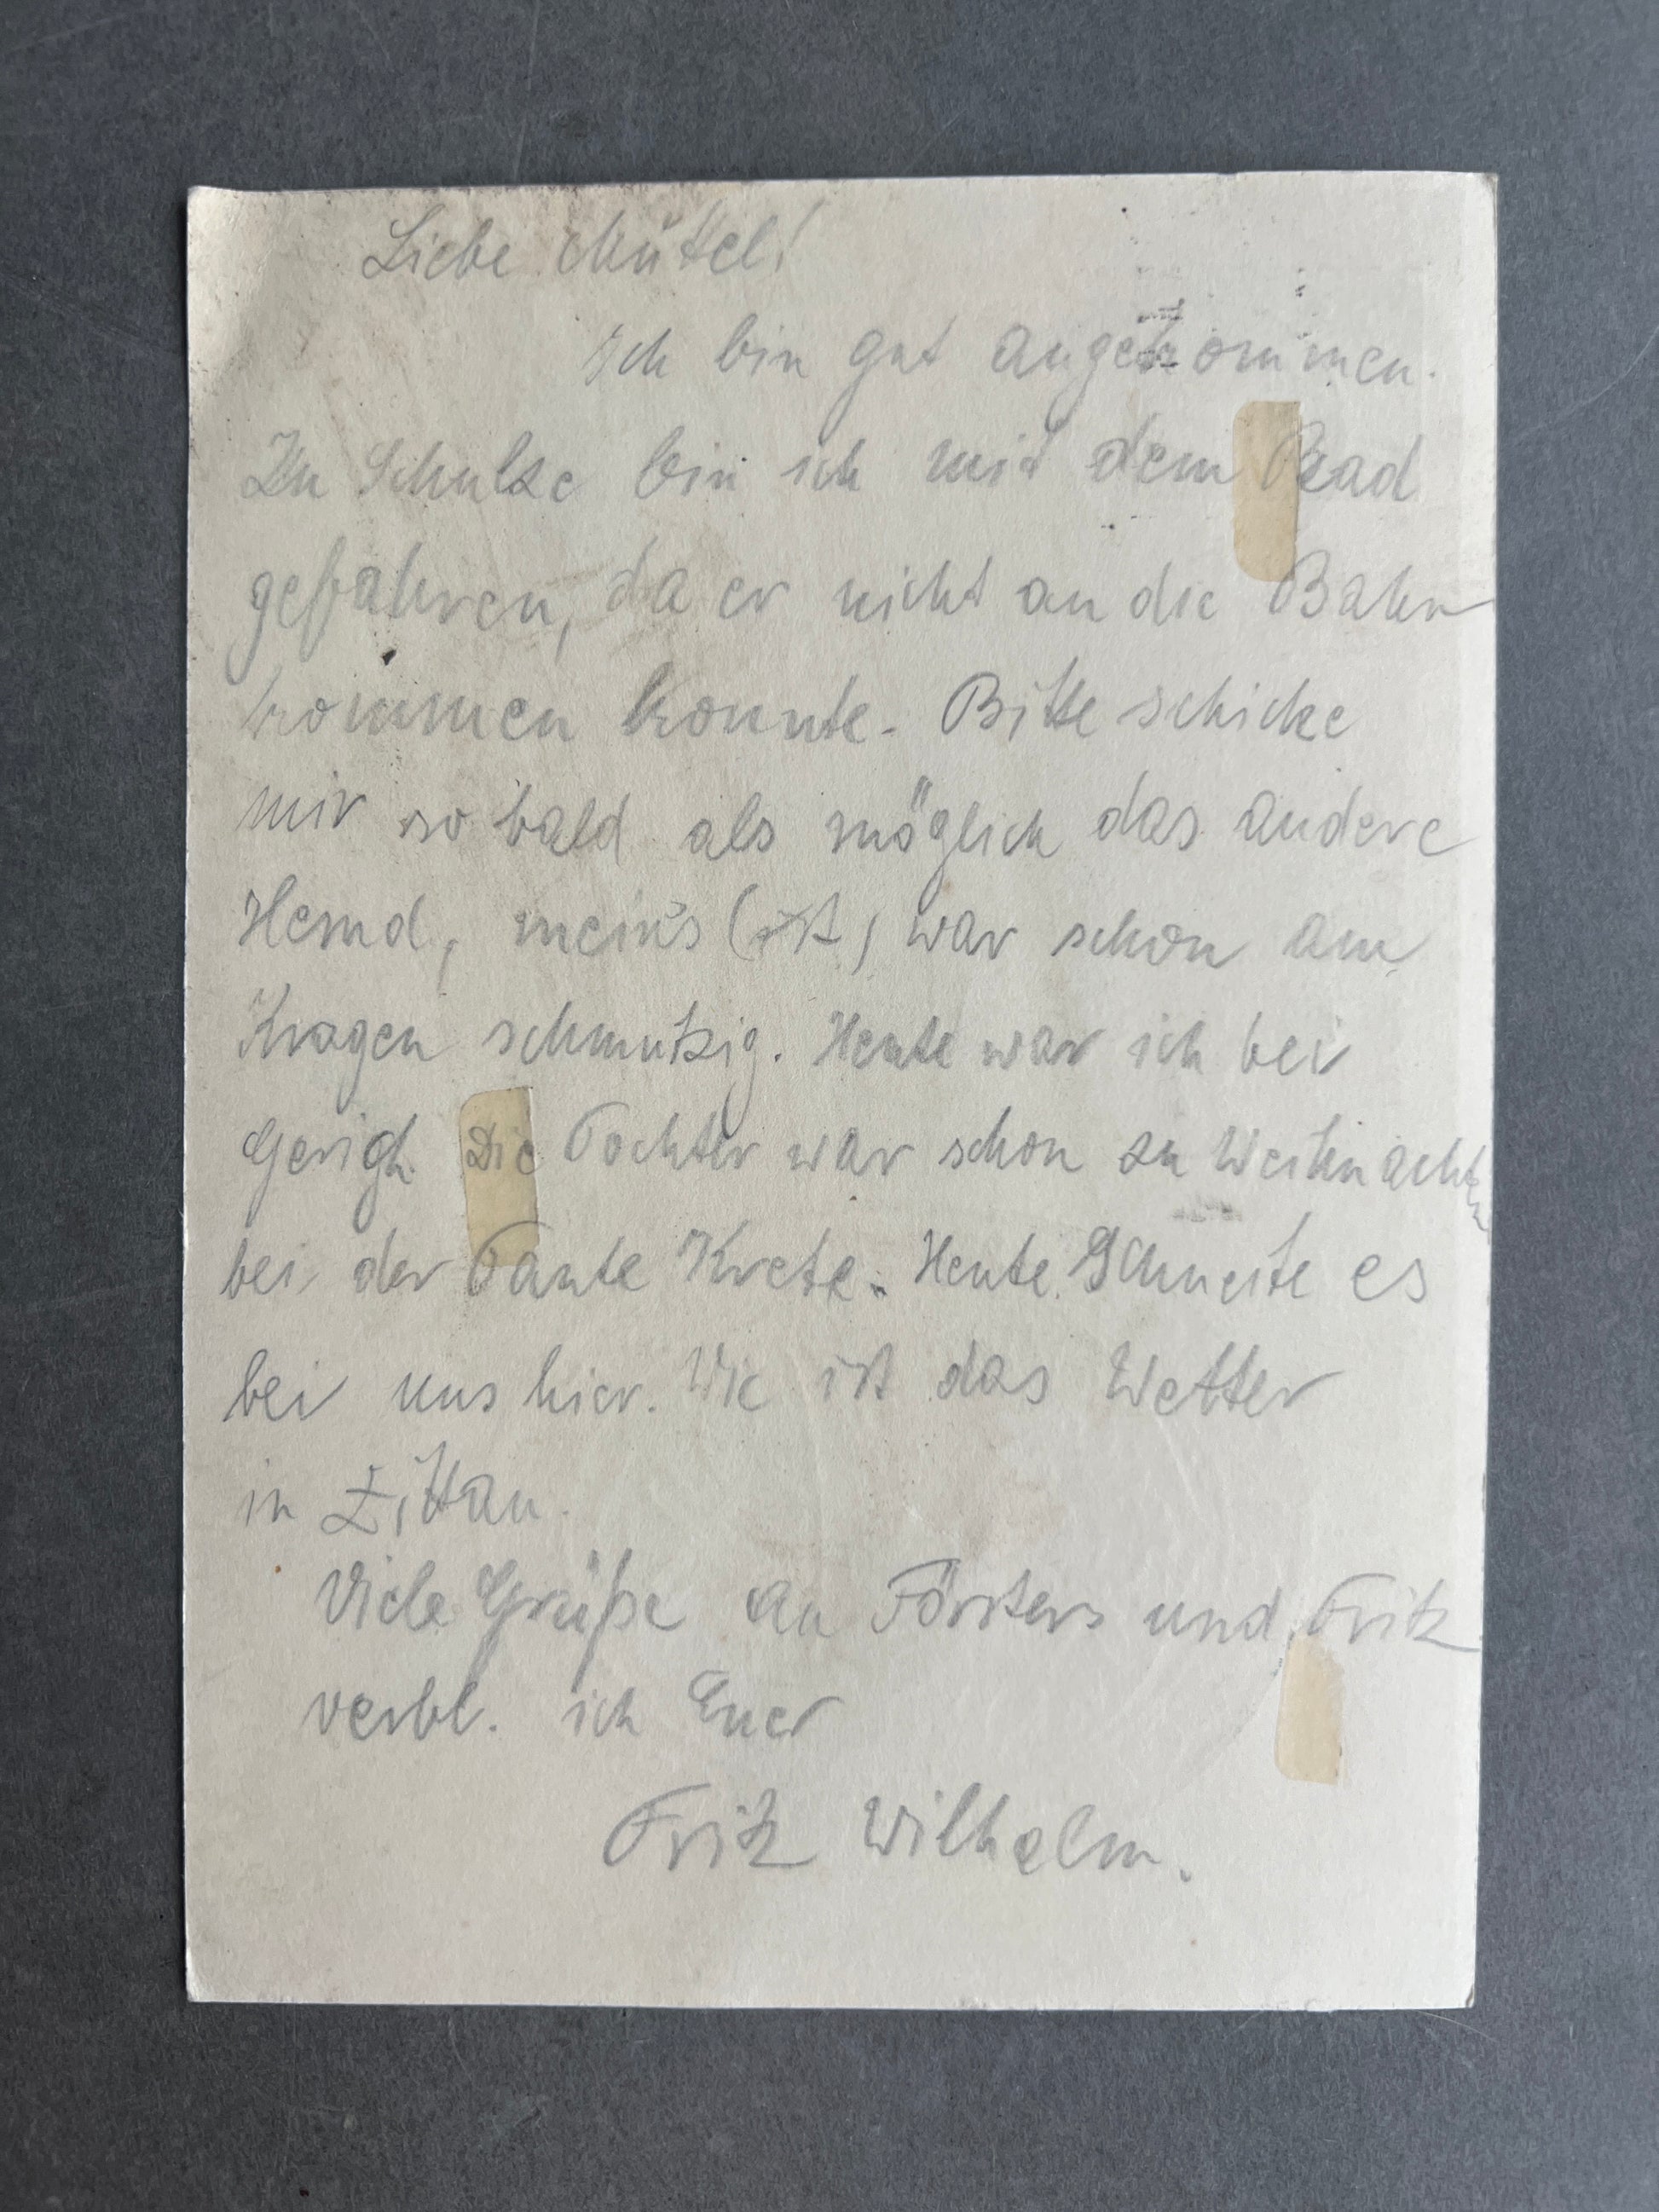 Liebe Müttel!
Ich bin gut angekommen.
Zu Schulze bin ich mit dem Rad
gefahren, da er nicht an die Bahn
kommen konnte. Bitte schicke
mir so bald als möglich das andere
Hemd, meins (ist) war schon am
Kragen schmutzig. Heute war ich bei
Die Tochter war schon zu Weihnachten
bei der Tante Krete. Heute Schneite es
bei uns hier. Wie ist das Wetter
in Zittau.
Viele Grüße an Försters und Fritz
verbl. ich Euer
Fritz Wilhelm.